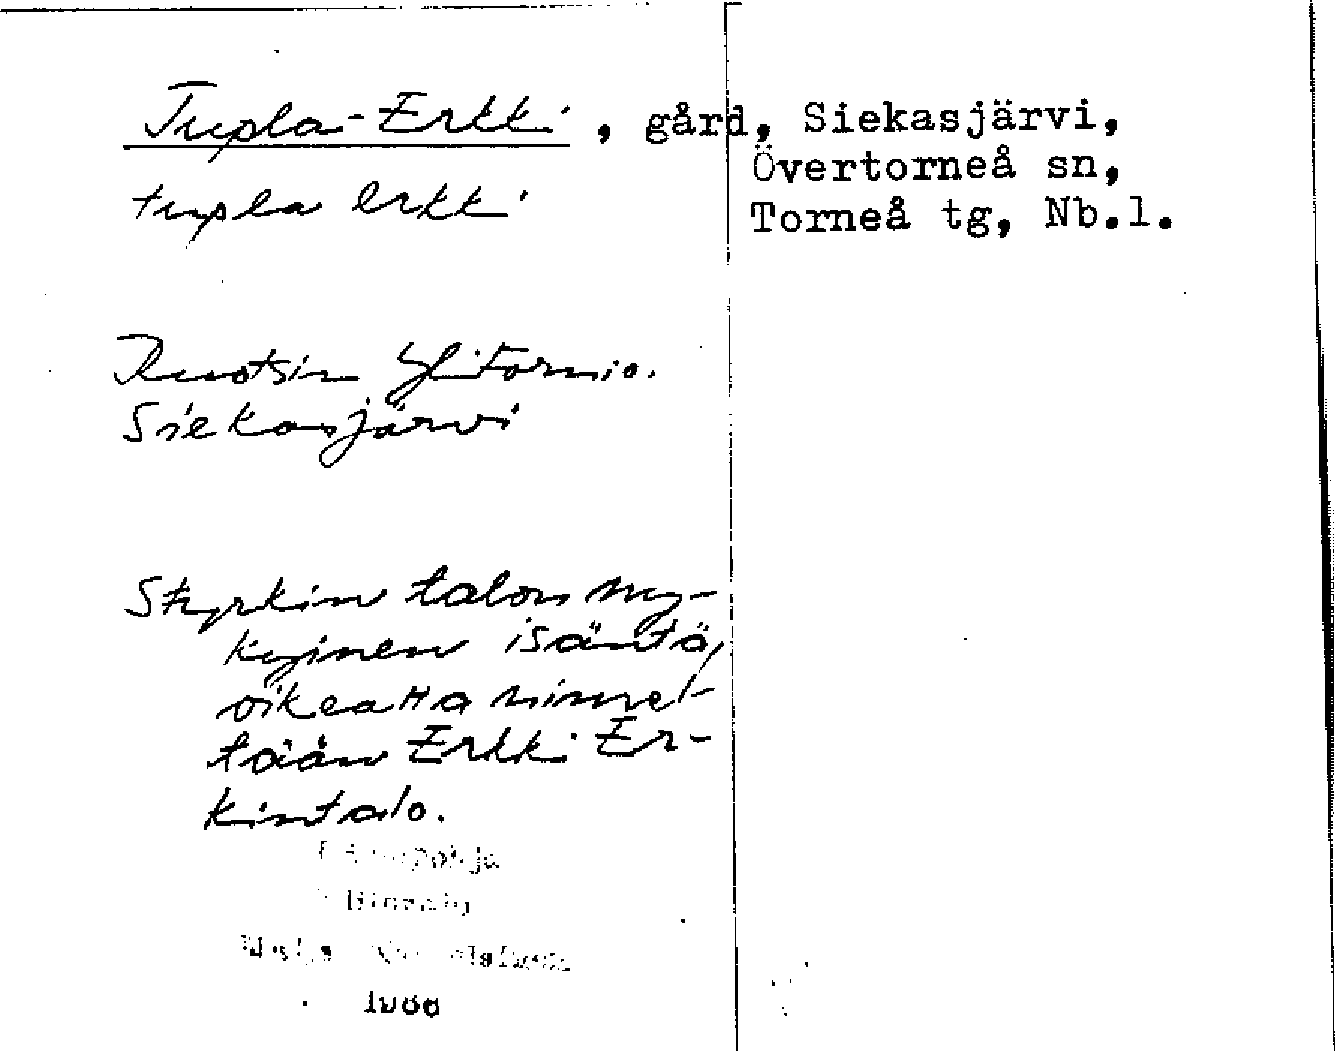 Tupla-Erkki, gård, Siekasjärvi,
Övertorneå sn,
tupla erkki
Torneå tg, Nb.l.
Ruotsin Ylitornio.
Siekasjärvi
Styrkin talon ny-
kyinen isäntä,
oikeatta nimel-
tään Erkki Er-
kintalo.